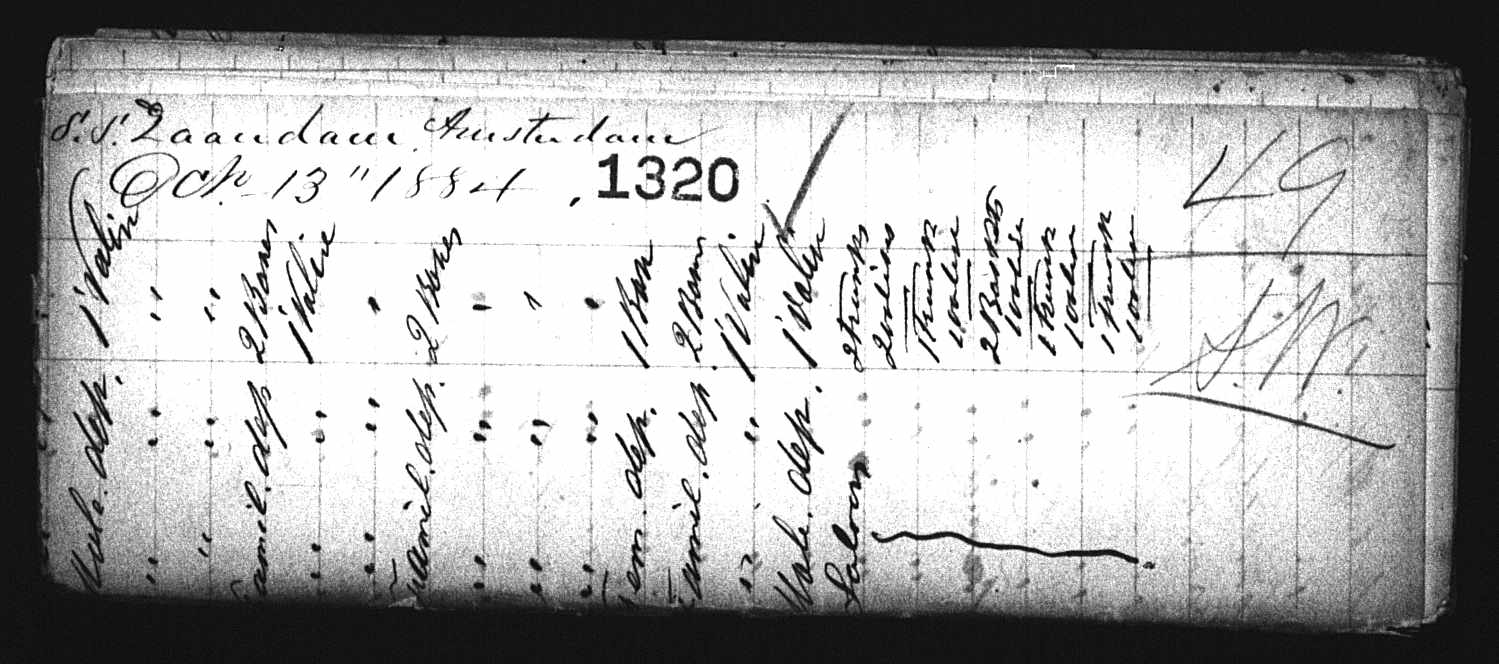 S.S. Zaandam. Amsterdam
Oct. 13" 1884. 1320
49
S.W.
Male. dep. 1 Valise
" " "
" " "
Famil. dep 2 Boxes
" " 1 Valise
" " "
Famil. dep. 2 Boxes
" " "
" " "
" " "
Fem. dep. 1 Box
Famil. dep. 2 Boxes
" " 1 Valise
Male. dep. 1 Valise
Saloon 2 Trunks
2 valises
1 Trunk
1 valise
2 Baskets
1 valise
1 Trunk
1 valise
1 Trunk
1 valise